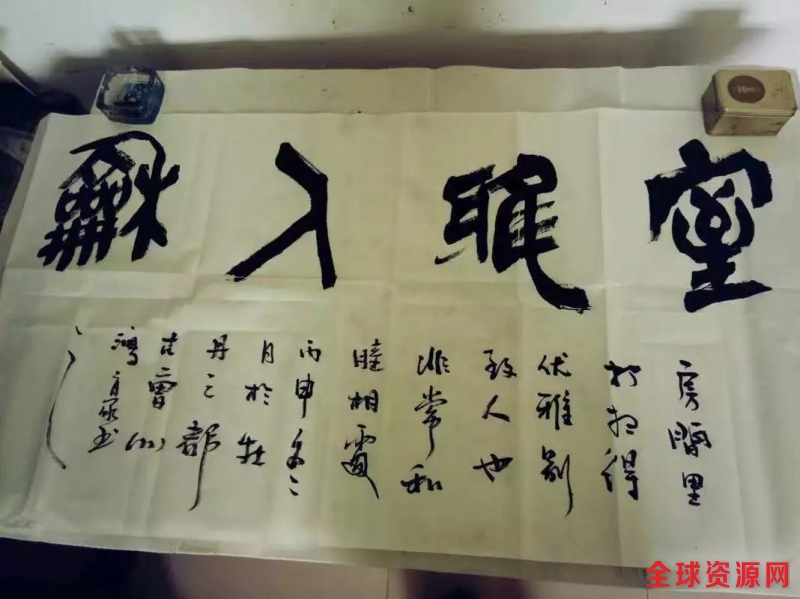 室雅人龢
房間里
打扫得
优雅别
致人也
非常和
睦相處
丙申冬二
月於牡
丹之都
古曹州
鴻书
全球资源网